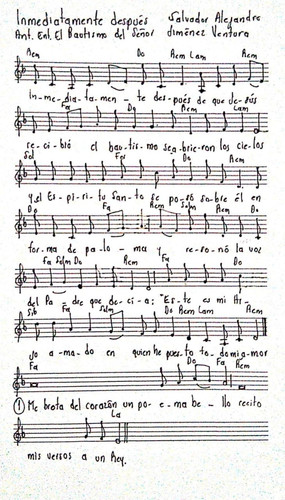 Inmediatamente después Salvador Alejandro
Ant. Ent. El Bautismo del Señor Jiménez Ventura
Rem Do Rem Lam Rem
in-me-dia-ta-men-te des-pués de que Je-sús
Fa Do Rem Lam
re-ci-bió el bau-tis-mo se a-brie-ron los cielos
Sol Fa Do Rem
y el Es-pí-ri-tu San-to se po-só so-bre él en
Do Fa Rem Solm Rem Do
for-ma de pa-lo-ma y re-so-nó la voz
Fa Solm Do Rem Fa
del Pa-dre que de-cí-a: "Es-te es mi Hi-
Sib Fa Solm Do Rem Lam Rem
jo a-ma-do en quien he pues-to to-do mi amor
Fa Do Fa Rem
① Me brota del corazón un po-e-ma be-llo recito
La
mis versos a un Rey.